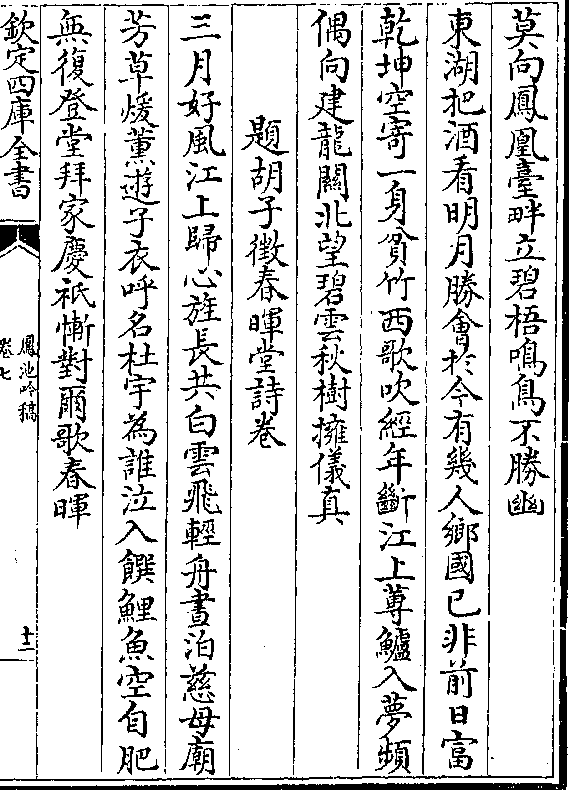 莫向鳳凰臺畔立碧梧鳴鳥不勝幽
東湖把酒看明月勝會於今有幾人鄉國已非前日富
乾坤空寄一身貧竹西歌吹經年斷江上蓴鱸入夢頻
偶向建龍關北望碧雲秋樹擁儀真
題胡子徵春暉堂詩卷
三月好風江上歸心旌長共白雲飛輕舟晝泊慈母廟
芳草煖薰遊子衣呼名杜宇為誰泣入饌鯉魚空自肥
無復登堂拜家慶祇慚對爾歌春暉
欽定四庫全書
鳳池吟稿
卷七
十二